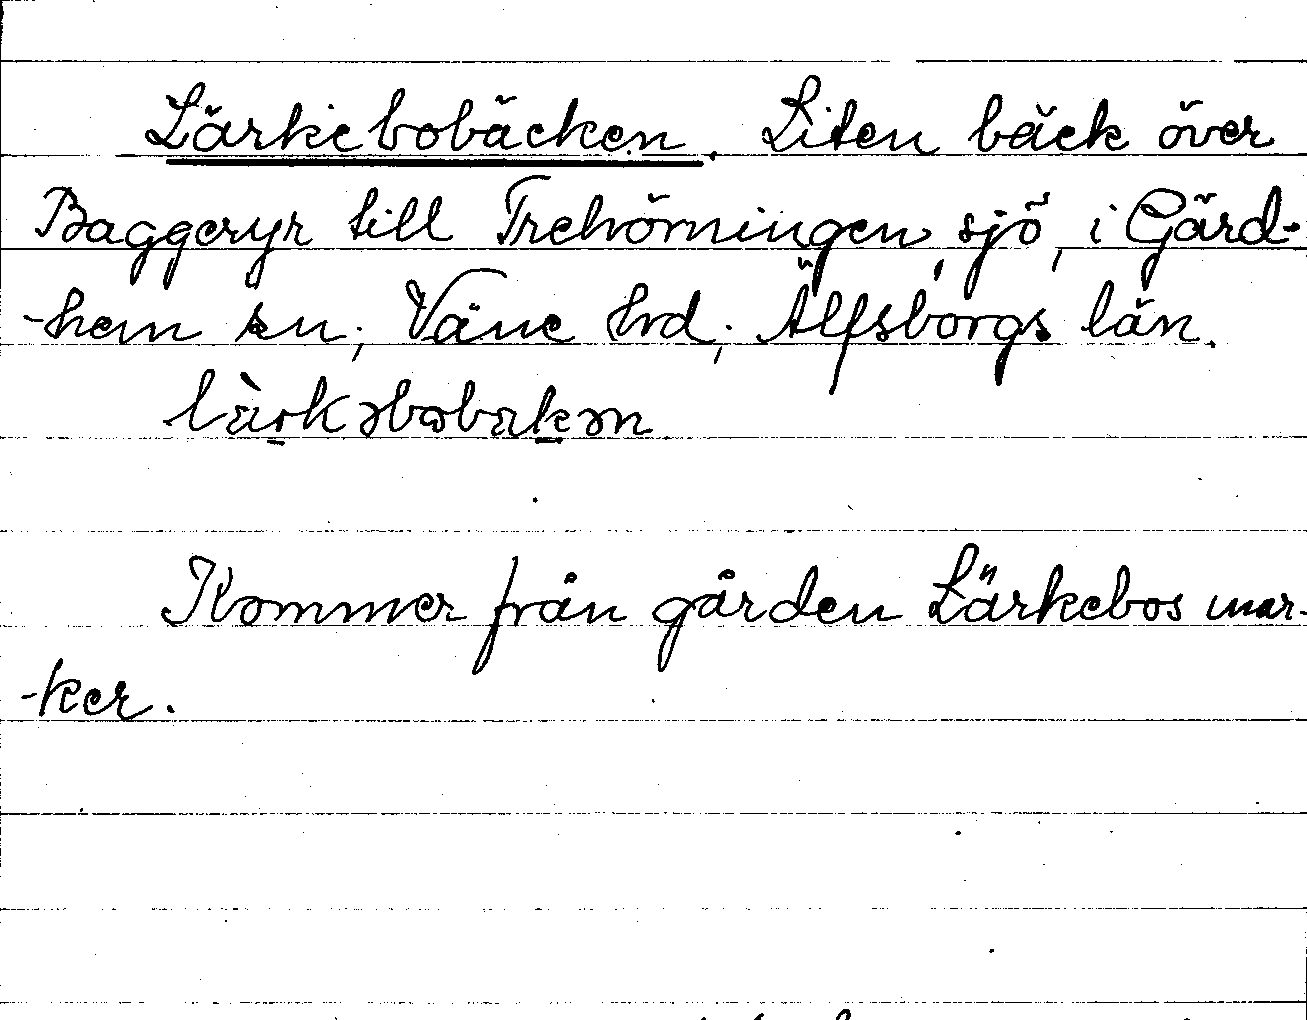 Lärkebobäcken. Liten bäck över
Baggeryr till Trehörningen, sjö, i Gärd-
-hem sn; Väne hrd; Älfsborgs län.
Kommer från gården Lärkebos mar-
-ker.